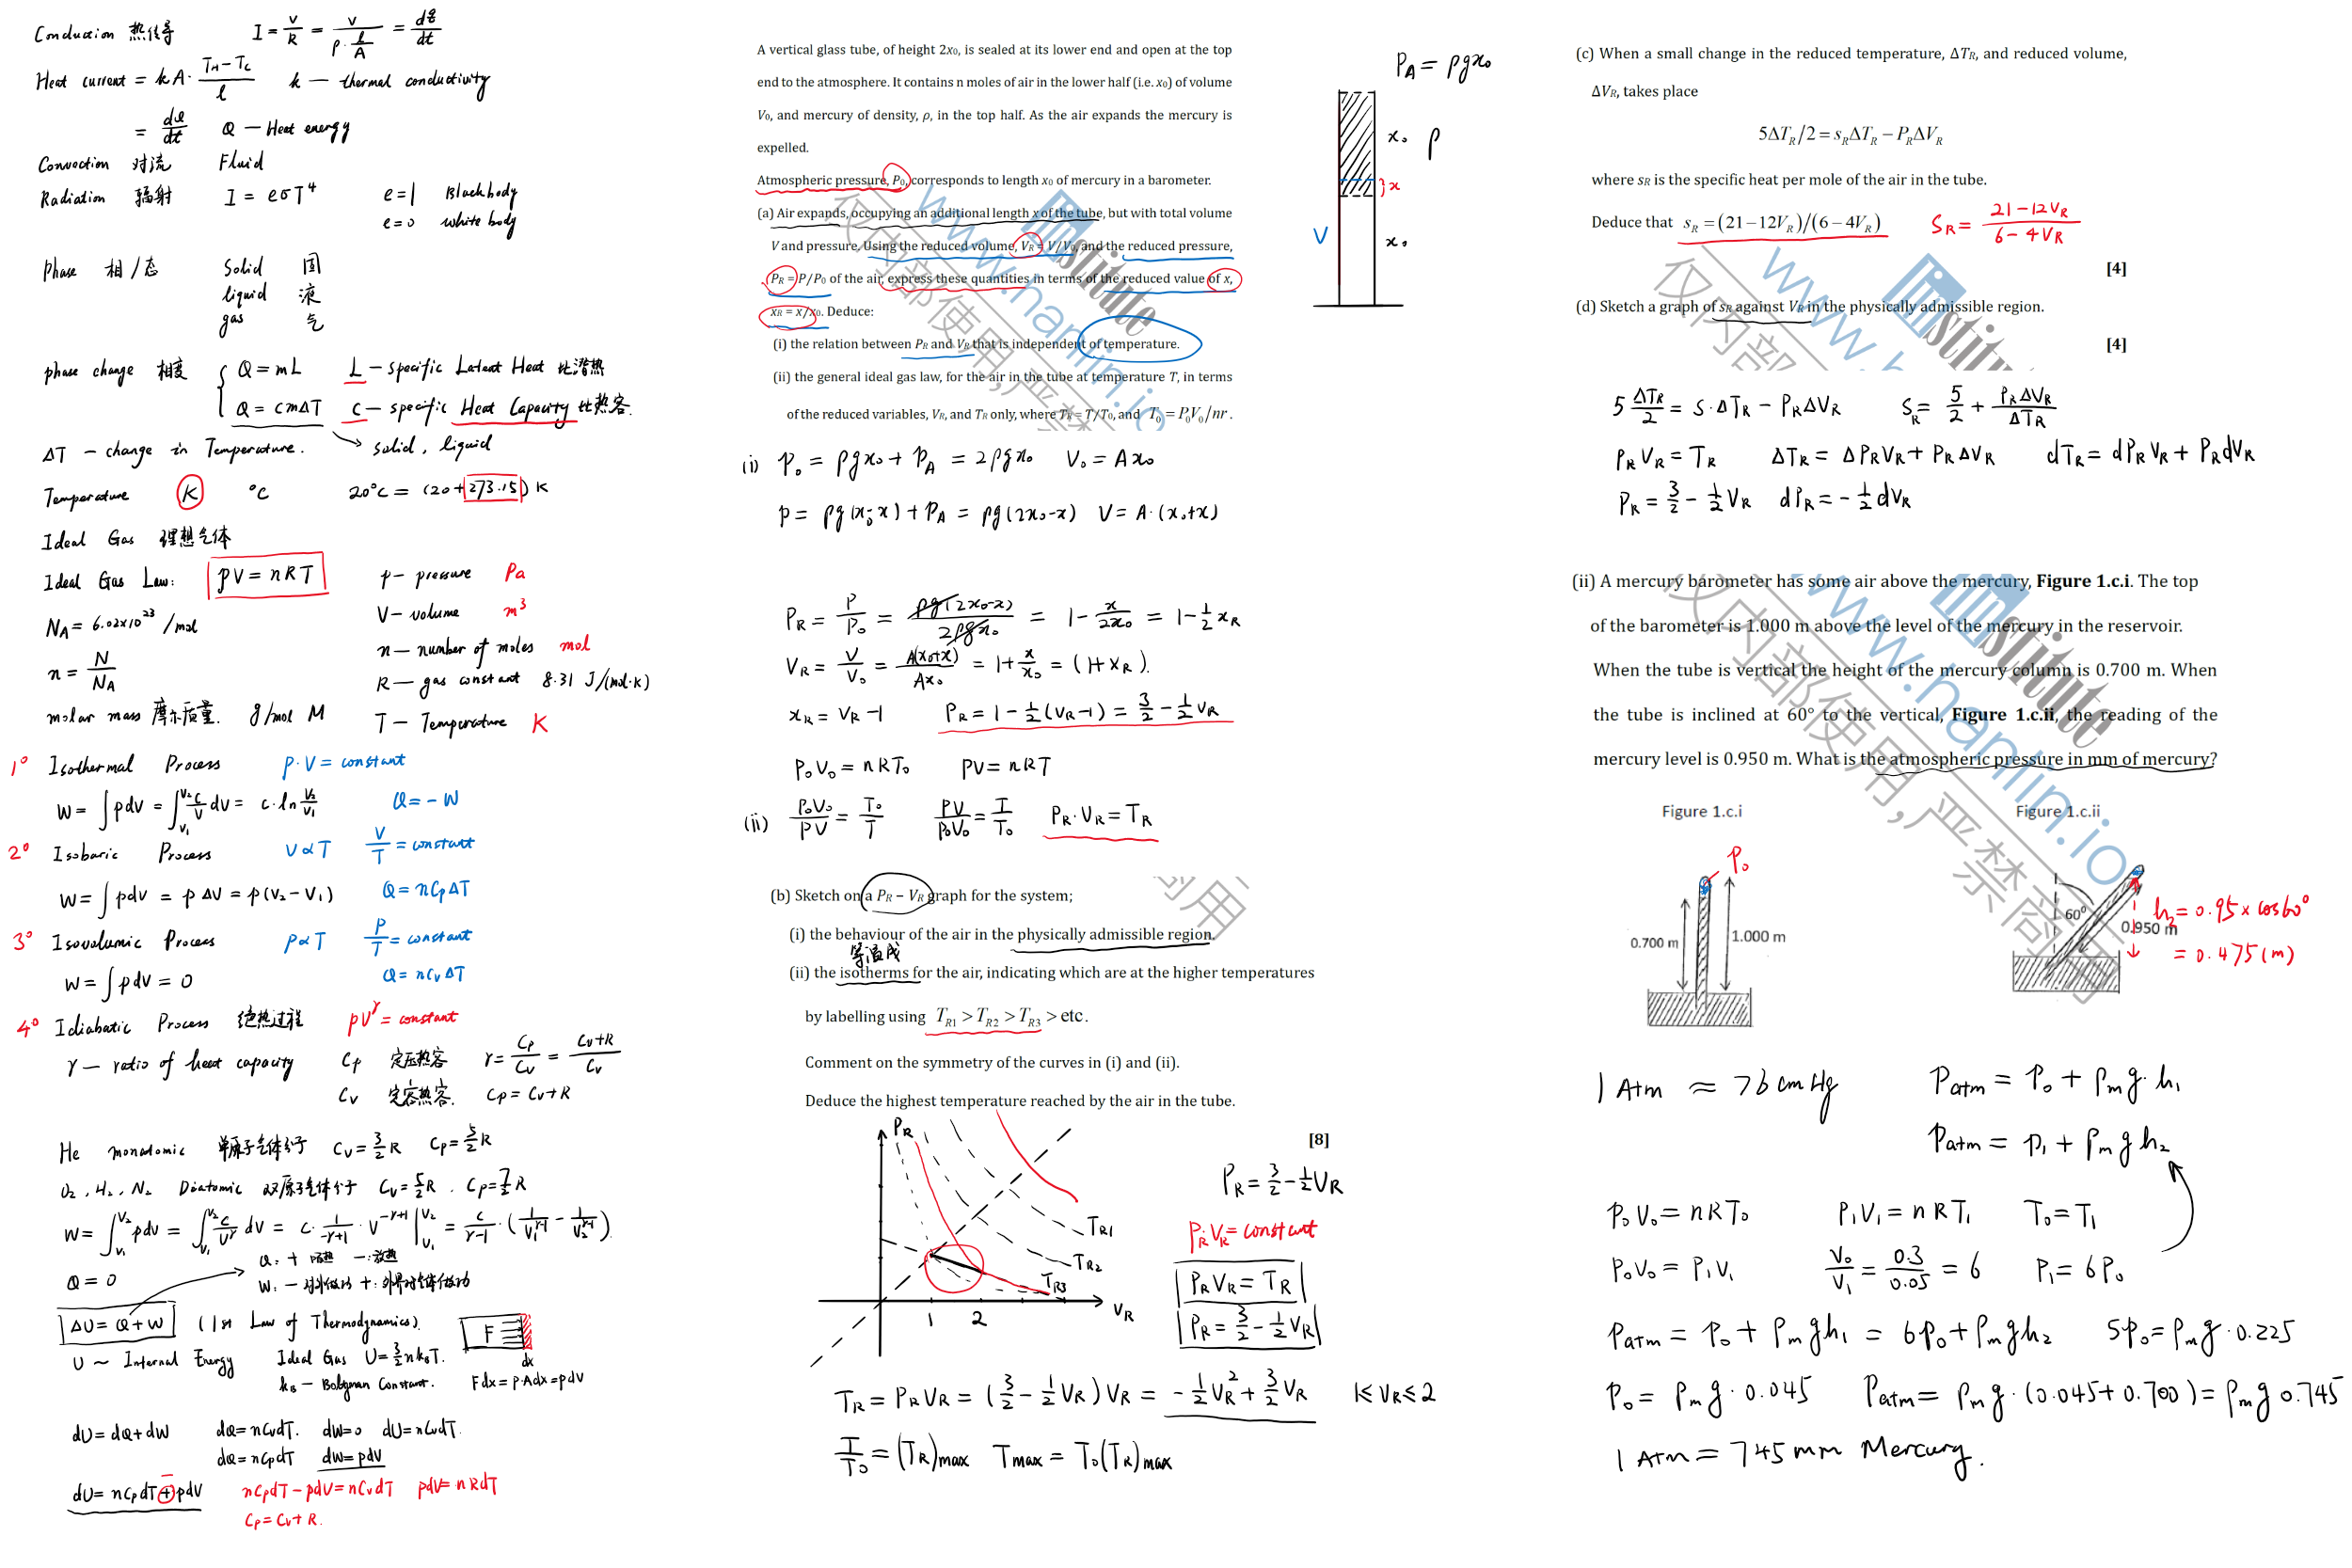 Conduction 热传导 I = V/R = V/(ρ·l/A) = dq/dt
Heat current = kA·(T_H−T_C)/l k — thermal conductivity
= dQ/dt Q — Heat energy
Convection 对流 Fluid
Radiation 辐射 I = eσT⁴ e=1 Blackbody
e=0 white body
phase 相/态 Solid 固
liquid 液
gas 气
phase change 相变 { Q = mL L — specific Latent Heat 比潜热
Q = cmΔT c — specific Heat Capacity 比热容.
ΔT — change in Temperature. solid, liquid
Temperature K °C 20°C = (20+273.15) K
Ideal Gas 理想气体
Ideal Gas Law: pV = nRT p — pressure Pa
N_A = 6.02×10²³ /mol V — volume m³
n = N/N_A n — number of moles mol
R — gas constant 8.31 J/(mol·K)
molar mass 摩尔质量. g/mol M T — Temperature K
1° Isothermal Process p·V = constant
W = ∫pdV = ∫_{V₁}^{V₂} c/V dV = c·ln V₂/V₁ Q = −W
2° Isobaric Process V∝T V/T = constant
W = ∫pdV = pΔV = p(V₂−V₁) Q = nCpΔT
3° Isovolumic Process p∝T P/T = constant
W = ∫pdV = 0 Q = nCvΔT
4° Idiabatic Process 绝热过程 pV^γ = constant
γ — ratio of heat capacity Cp 定压热容 γ = Cp/Cv = (Cv+R)/Cv
Cv 定容热容. Cp = Cv+R
He monatomic 单原子气体分子 Cv = 3/2 R Cp = 5/2 R
O₂, H₂, N₂ Diatomic 双原子气体分子 Cv = 5/2 R. Cp = 7/2 R
W = ∫_{V₁}^{V₂} pdV = ∫_{V₁}^{V₂} c/V^γ dV = c·1/(−γ+1)·V^{−γ+1}|_{V₁}^{V₂} = c/(γ−1)·(1/V₁^{γ−1} − 1/V₂^{γ−1}).
Q: + 吸热 −: 放热
Q = 0
W: − 对外做功 +: 外界对气体做功
ΔU = Q+W (1st Law of Thermodynamics). F
U ~ Internal Energy Ideal Gas U = 3/2 nk_BT. dx
k_B — Boltzman Constant. Fdx = p·Adx = pdV
dU = dQ+dW dQ = nCvdT. dW = 0 dU = nCvdT.
dQ = nCpdT dW = pdV
dU = nCpdT + pdV nCpdT − pdV = nCvdT pdV = nRdT
−
Cp = Cv + R.
A vertical glass tube, of height 2x₀, is sealed at its lower end and open at the top
end to the atmosphere. It contains n moles of air in the lower half (i.e. x₀) of volume
V₀, and mercury of density, ρ, in the top half. As the air expands the mercury is
expelled.
Atmospheric pressure, P₀, corresponds to length x₀ of mercury in a barometer.
(a) Air expands, occupying an additional length x of the tube, but with total volume
V and pressure. Using the reduced volume, V_R = V/V₀, and the reduced pressure,
P_R = P/P₀ of the air, express these quantities in terms of the reduced value of x,
x_R = x/x₀. Deduce:
(i) the relation between P_R and V_R that is independent of temperature.
(ii) the general ideal gas law, for the air in the tube at temperature T, in terms
of the reduced variables, V_R, and T_R only, where T_R = T/T₀, and T₀ = P₀V₀/nr.
P_A = ρgx₀
x₀ ρ
x
V x₀
(i) p₀ = ρgx₀ + P_A = 2ρgx₀ V₀ = Ax₀
p = ρg(x₀−x) + P_A = ρg(2x₀−x) V = A·(x₀+x)
P_R = P/P₀ = ρg(2x₀−x)/2ρgx₀ = 1 − x/2x₀ = 1 − 1/2 x_R
V_R = V/V₀ = A(x₀+x)/Ax₀ = 1 + x/x₀ = (1+x_R).
x_R = V_R −1 P_R = 1 − 1/2(V_R−1) = 3/2 − 1/2 V_R
P₀V₀ = nRT₀ PV = nRT
(ii) P₀V₀/PV = T₀/T PV/P₀V₀ = T/T₀ P_R·V_R = T_R
(b) Sketch on a P_R – V_R graph for the system;
(i) the behaviour of the air in the physically admissible region.
等温线
(ii) the isotherms for the air, indicating which are at the higher temperatures
by labelling using T_R1 > T_R2 > T_R3 > etc.
Comment on the symmetry of the curves in (i) and (ii).
Deduce the highest temperature reached by the air in the tube.
[8]
P_R
T_R1
T_R2
T_R3
1 2 V_R
P_R = 3/2 − 1/2 V_R
P_R V_R = constant
P_R V_R = T_R
P_R = 3/2 − 1/2 V_R
T_R = P_R V_R = (3/2 − 1/2 V_R) V_R = −1/2 V_R² + 3/2 V_R 1≤V_R≤2
T/T₀ = (T_R)max Tmax = T₀(T_R)max
(c) When a small change in the reduced temperature, ΔT_R, and reduced volume,
ΔV_R, takes place
5ΔT_R/2 = s_RΔT_R − P_RΔV_R
where s_R is the specific heat per mole of the air in the tube.
Deduce that s_R = (21−12V_R)/(6−4V_R) S_R = (21−12V_R)/(6−4V_R)
[4]
(d) Sketch a graph of s_R against V_R in the physically admissible region.
[4]
5 ΔT_R/2 = S·ΔT_R − P_RΔV_R S_R = 5/2 + P_RΔV_R/ΔT_R
P_R V_R = T_R ΔT_R = ΔP_R V_R + P_R ΔV_R dT_R = dP_R V_R + P_R dV_R
P_R = 3/2 − 1/2 V_R dP_R = −1/2 dV_R
(ii) A mercury barometer has some air above the mercury, Figure 1.c.i. The top
of the barometer is 1.000 m above the level of the mercury in the reservoir.
When the tube is vertical the height of the mercury column is 0.700 m. When
the tube is inclined at 60° to the vertical, Figure 1.c.ii, the reading of the
mercury level is 0.950 m. What is the atmospheric pressure in mm of mercury?
Figure 1.c.i Figure 1.c.ii
P₀
0.700 m 1.000 m
60° 0.950 m
h₂ = 0.95 × cos60°
= 0.475 (m)
1 Atm ≈ 76 cm Hg Patm = P₀ + ρ_m g·h₁
Patm = P₁ + ρ_m g h₂
P₀V₀ = nRT₀ P₁V₁ = nRT₁ T₀ = T₁
P₀V₀ = P₁V₁ V₀/V₁ = 0.3/0.05 = 6 P₁ = 6P₀
Patm = P₀ + ρ_m g h₁ = 6P₀ + ρ_m g h₂ 5P₀ = ρ_m g·0.225
P₀ = ρ_m g·0.045 Patm = ρ_m g·(0.045+0.700) = ρ_m g 0.745
1 Atm = 745 mm Mercury.
仅内部使用,严禁商用
www.hanlin.io
institute